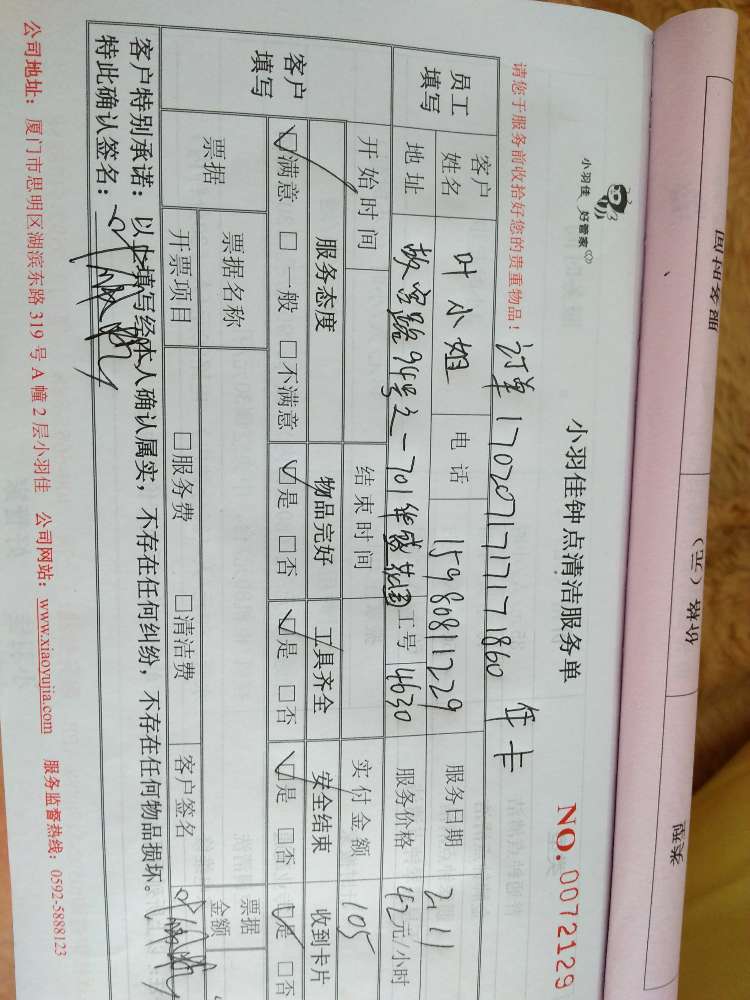 小羽佳 好管家
小羽佳钟点清洁服务单
NO. 0072129
请您于服务前收拾好您的贵重物品！
订单 170207171771860 年卡
员工填写
客户姓名 叶小姐 电话 15980811229 服务日期 2.11
地址 故宫路94号之一701华盛花园 工号 4630 服务价格 42元/小时
客户填写
开始时间 结束时间 实付金额 105
服务态度 物品完好 工具齐全 安全结束 收到卡片
☑满意 □一般 □不满意 ☑是 □否 ☑是 □否 ☑是 □否 ☑是 □否
票据 票据名称 票据金额
开票项目 □服务费 □清洁费 客户签名
客户特别承诺：以上填写经本人确认属实，不存在任何纠纷，不存在任何物品损坏。
特此确认签名：
公司地址：厦门市思明区湖滨东路319号A幢2层小羽佳 公司网站：www.xiaoyujia.com 服务监督热线：0592-5888123